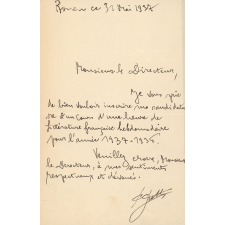 Rouen ce 31 Mai 1937
Monsieur le Directeur,
Je vous prie
de bien vouloir inscrire ma candidature
d'une heure de
littérature française hebdomadaire
pour l'année 1937-1938.
Veuillez croire, Monsieur
le Directeur, à mes sentiments
respectueux et dévoués.